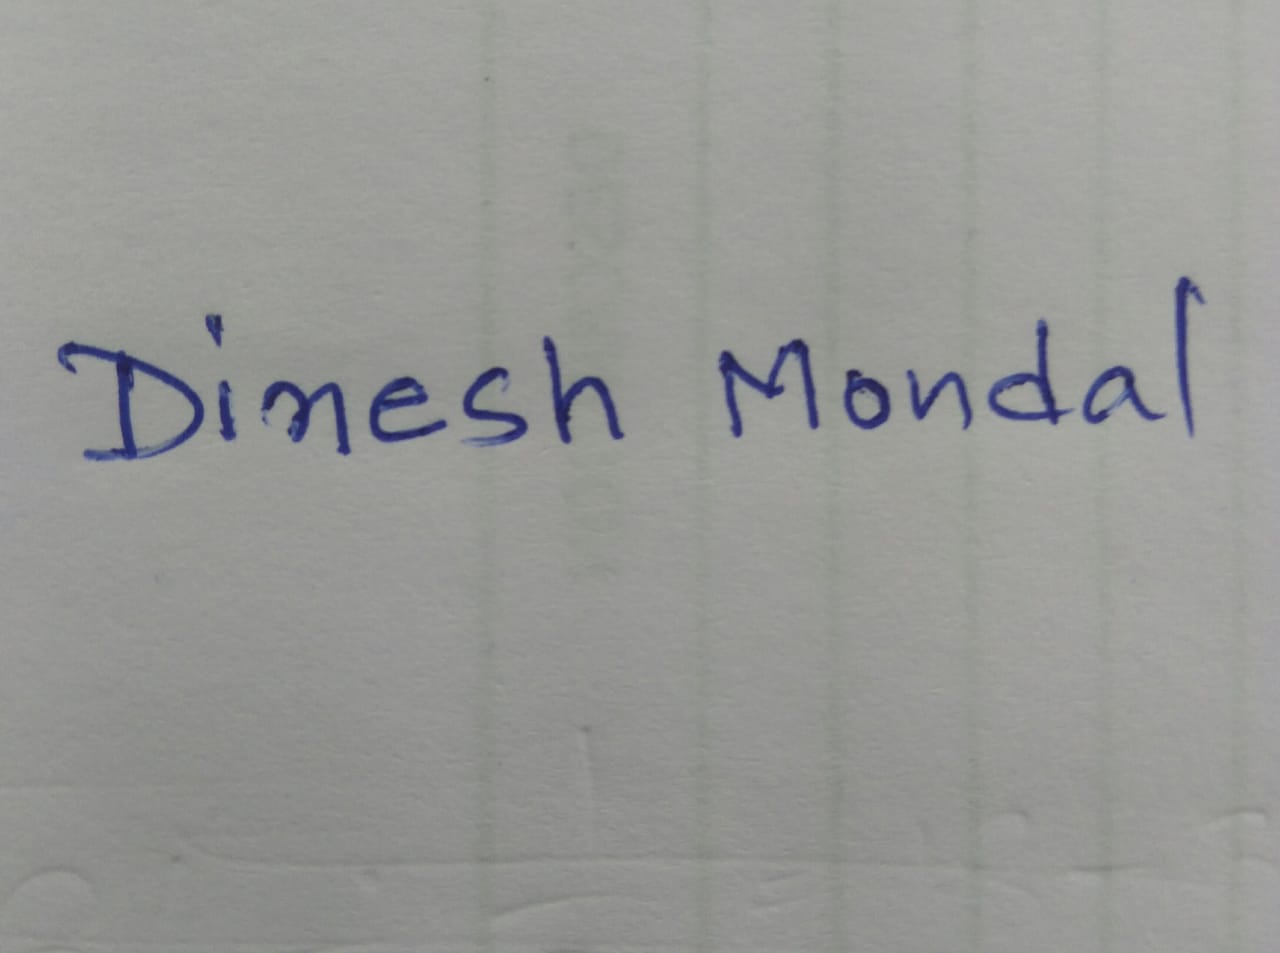 Dinesh Mondal